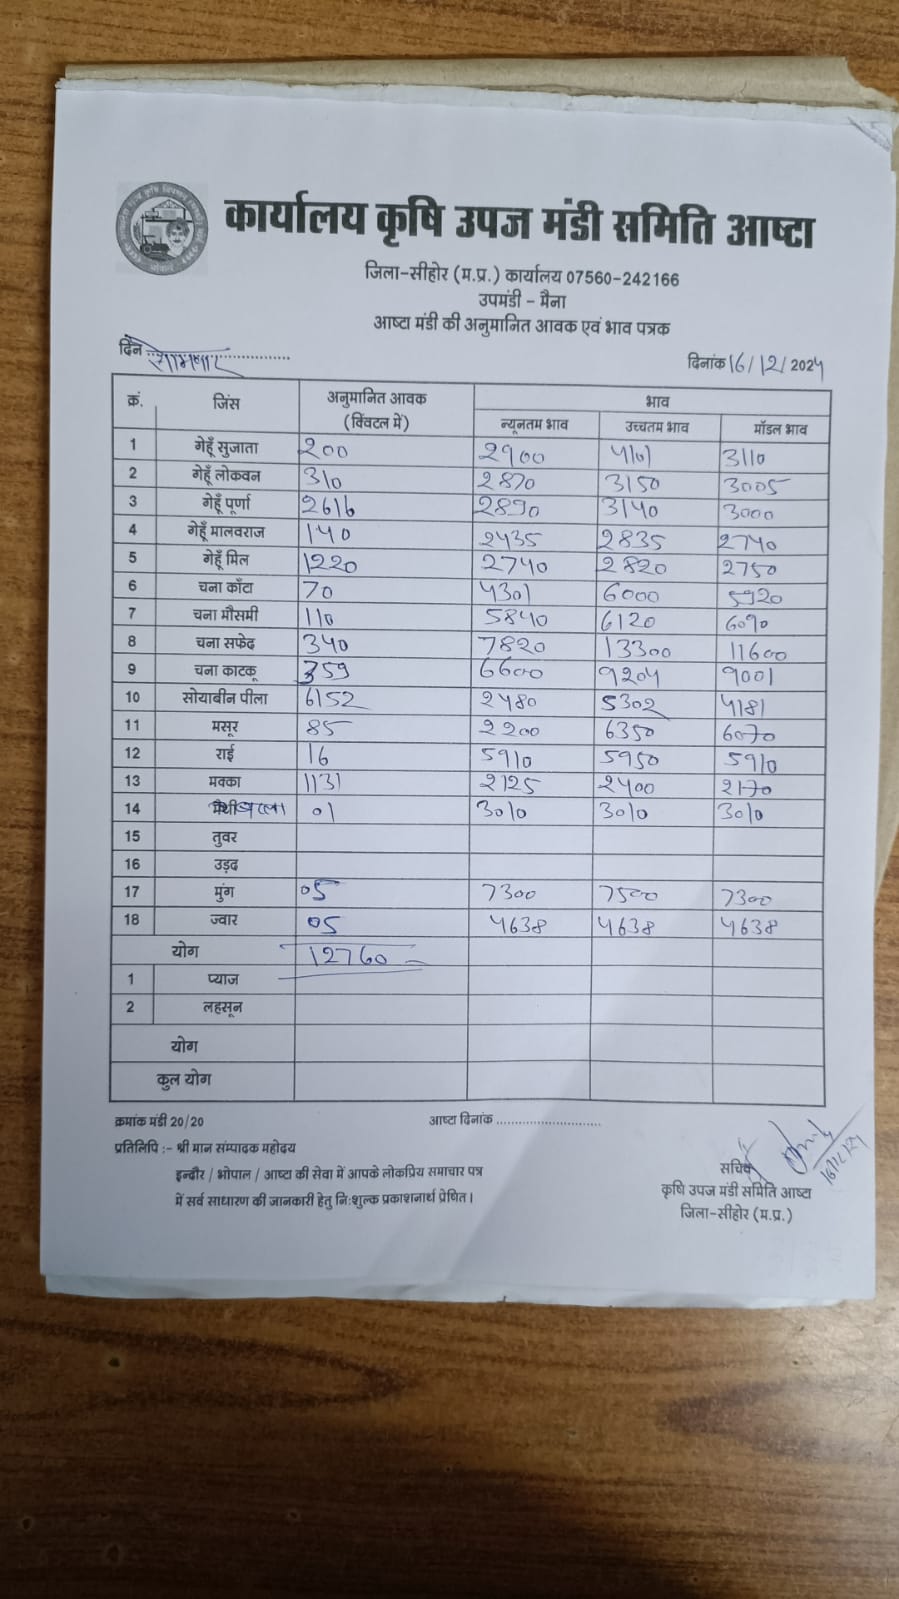 कार्यालय कृषि उपज मंडी समिति आष्टा
जिला-सीहोर (म.प्र.) कार्यालय 07560-242166
उपमंडी - मैना
आष्टा मंडी की अनुमानित आवक एवं भाव पत्रक
दिन सोमवार दिनांक 16/12/2024
क्रं. जिंस अनुमानित आवक (क्विंटल में) भाव
न्यूनतम भाव उच्चतम भाव मॉडल भाव
1 गेहूँ सुजाता 200 2900 4101 3110
2 गेहूँ लोकवन 310 2870 3150 3005
3 गेहूँ पूर्णा 2616 2890 3140 3000
4 गेहूँ मालवराज 140 2435 2835 2740
5 गेहूँ मिल 1220 2740 2820 2750
6 चना काँटा 70 4301 6000 5920
7 चना मौसमी 110 5840 6120 6090
8 चना सफेद 340 7820 13300 11600
9 चना काटकू 359 6600 9204 9001
10 सोयाबीन पीला 6152 2480 5302 4181
11 मसूर 85 2200 6350 6070
12 राई 16 5910 5950 5910
13 मक्का 1131 2125 2400 2170
14 01 3010 3010 3010
15 तुवर
16 उड़द
17 मुंग 05 7300 7500 7300
18 ज्वार 05 4638 4638 4638
योग 12760
1 प्याज
2 लहसून
योग
कुल योग
क्रमांक मंडी 20/20 आष्टा दिनांक
प्रतिलिपि :- श्री मान सम्पादक महोदय
इन्दौर / भोपाल / आष्टा की सेवा में आपके लोकप्रिय समाचार पत्र
में सर्व साधारण की जानकारी हेतु नि:शुल्क प्रकाशनार्थ प्रेषित।
16/12/24
सचिव
कृषि उपज मंडी समिति आष्टा
जिला-सीहोर (म.प्र.)